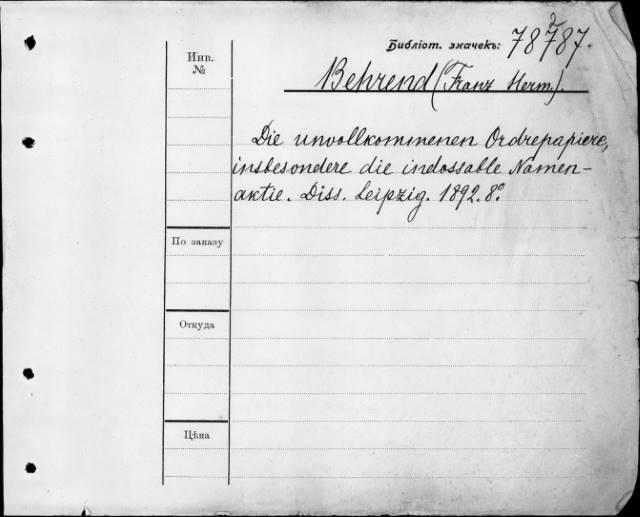 Библіот. значекъ: 78787.
2
Инв.
№
Behrend (Franz Herm.).
Die unvollkommenen Ordrepapiere,
insbesondere die indossable Namen-
aktie. Diss. Leipzig. 1892. 8°
По заказу
Откуда
Цѣна